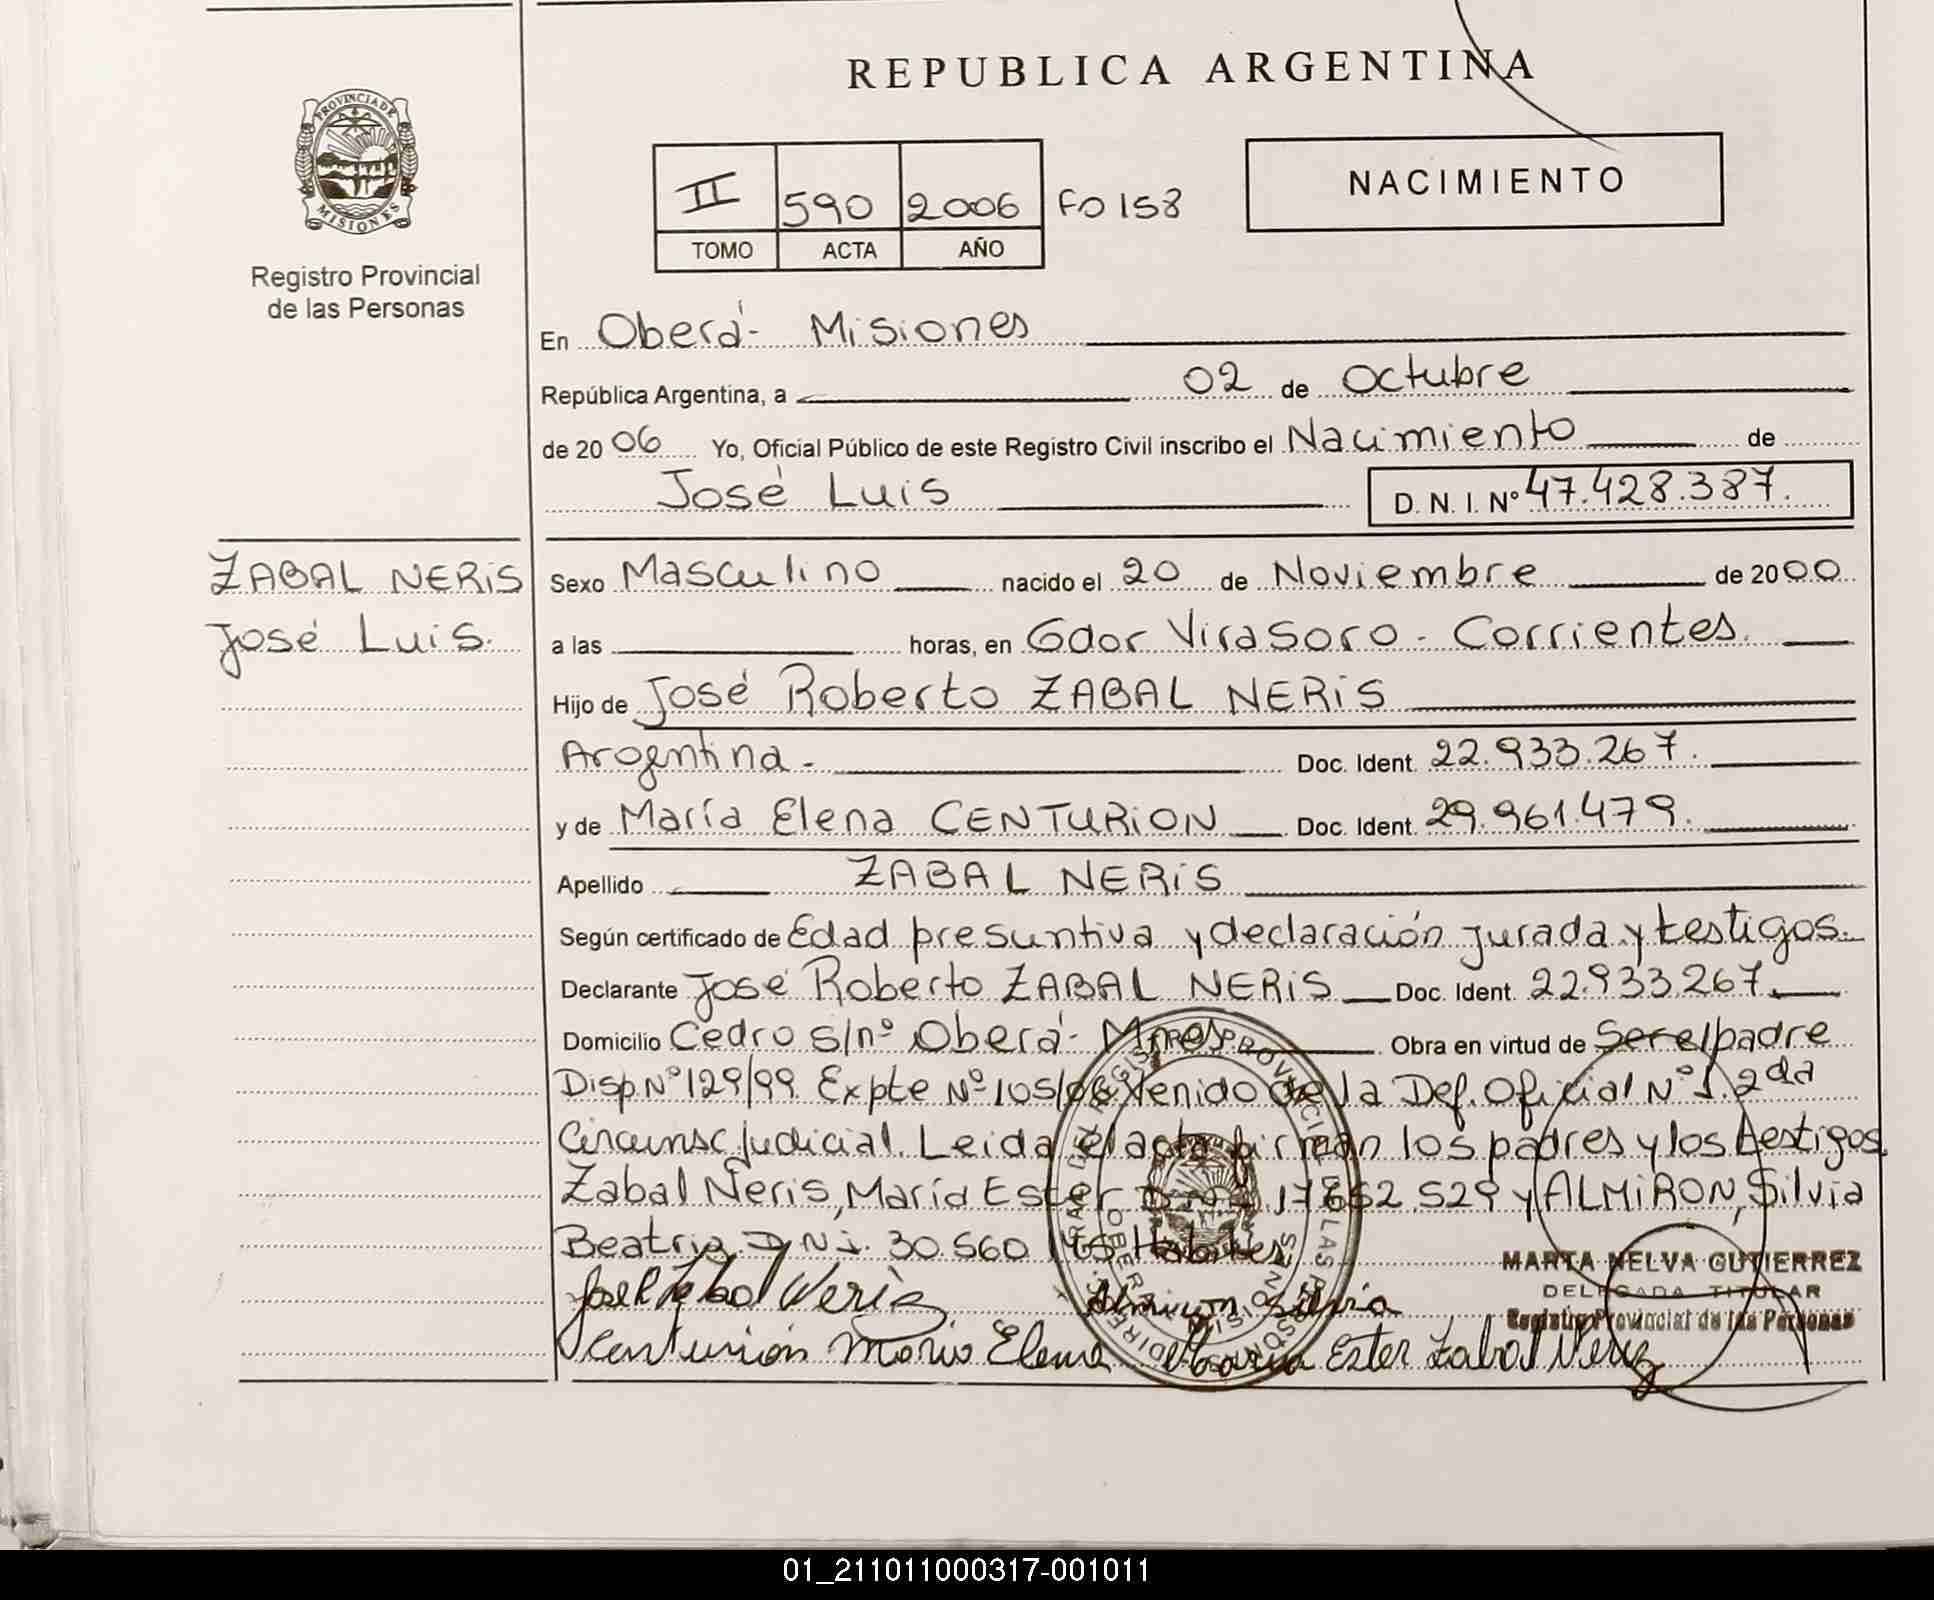 REPUBLICA ARGENTINA
PROVINCIA DE MISIONES
Registro Provincial
de las Personas
II 590 2006 Fo 158
TOMO ACTA AÑO
NACIMIENTO
En Oberá - Misiones
República Argentina, a 02 de Octubre
de 2006 Yo, Oficial Público de este Registro Civil inscribo el Nacimiento de
José Luis D. N. I. Nº 47.428.387.
ZABAL NERIS
José Luis.
Sexo Masculino nacido el 20 de Noviembre de 2000
a las horas, en Gdor Virasoro - Corrientes.
Hijo de José Roberto ZABAL NERIS
Argentina - Doc. Ident. 22.933.267.
y de María Elena CENTURION Doc. Ident. 29.961.479.
Apellido ZABAL NERIS
Según certificado de Edad presuntiva y declaración jurada y testigos.
Declarante José Roberto ZABAL NERIS Doc. Ident. 22.933.267.
Domicilio Cedro s/nº Oberá - Mnes. Obra en virtud de Ser el padre
Disp Nº 129/99 Expte Nº 105/06 Venido de la Def. Oficial Nº 1. 2da
Circunsc Judicial. Leida el acta firman los padres y los testigos
Zabal Neris, María Ester D.N.I. 17.652.529 y ALMIRON, Silvia
Beatriz D.N.I. 30.560 Habiles.
José R Zabal Neris Almiron Silvia
Centurión María Elena Maria Ester Zabal Neris
MARTA NELVA GUTIERREZ
DELEGADA TITULAR
Registro Provincial de las Personas
01_211011000317-001011